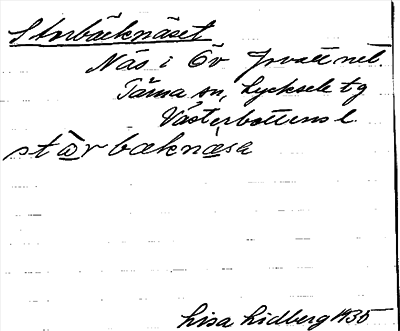 Storbäcknäset
Näs i Öv. Jovattnet.
Tärna sn, Lycksele tg
Västerbottens l.
stɷrbæknæsɛ
Lisa Lidberg 1935